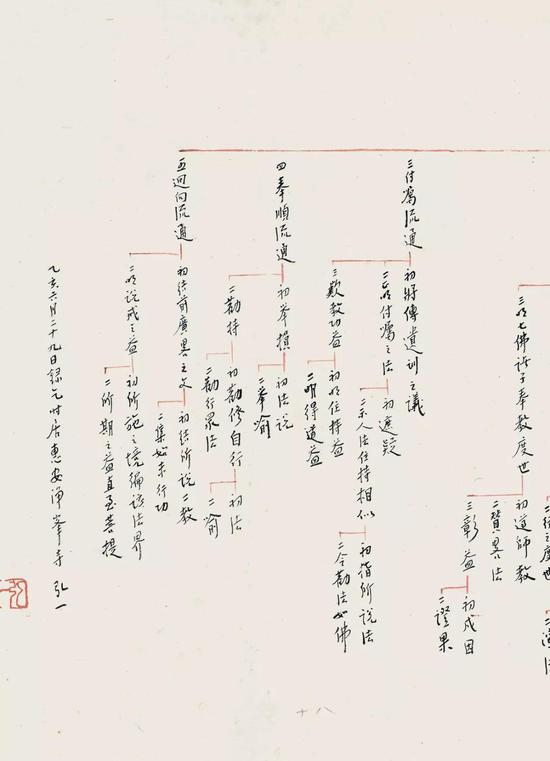 三明七佛诸子奉教度世
初道师教
二赞略法
三彰益
初成因
二證果
三付嘱流通
初将傳遺训之議
初遮疑
二明付嘱之法
二示人法住持相似
初指所说法
二令勸法如佛
三歎教功益
初明住持益
二明得道益
四奉順流通
初举損
初法说
二举喻
二勸持
初勸修自行
初法
二喻
二勸行眾法
五迴向流通
初结前廣略之文
初结所说二教
二集如来行功
二明说戒之益
初所施之境徧该法界
二所期之益直至菩提
乙亥六月二十九日録竟时居惠安淨峯寺 弘一
十八